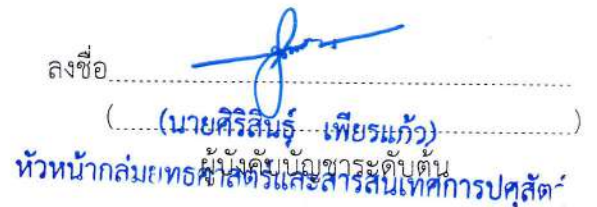 ลงชื่อ
(นายศิริสินธุ์ เพียรแก้ว)
ผู้บังคับบัญชาระดับต้น
หัวหน้ากลุ่มยุทธศาสตร์และสารสนเทศการปศุสัตว์